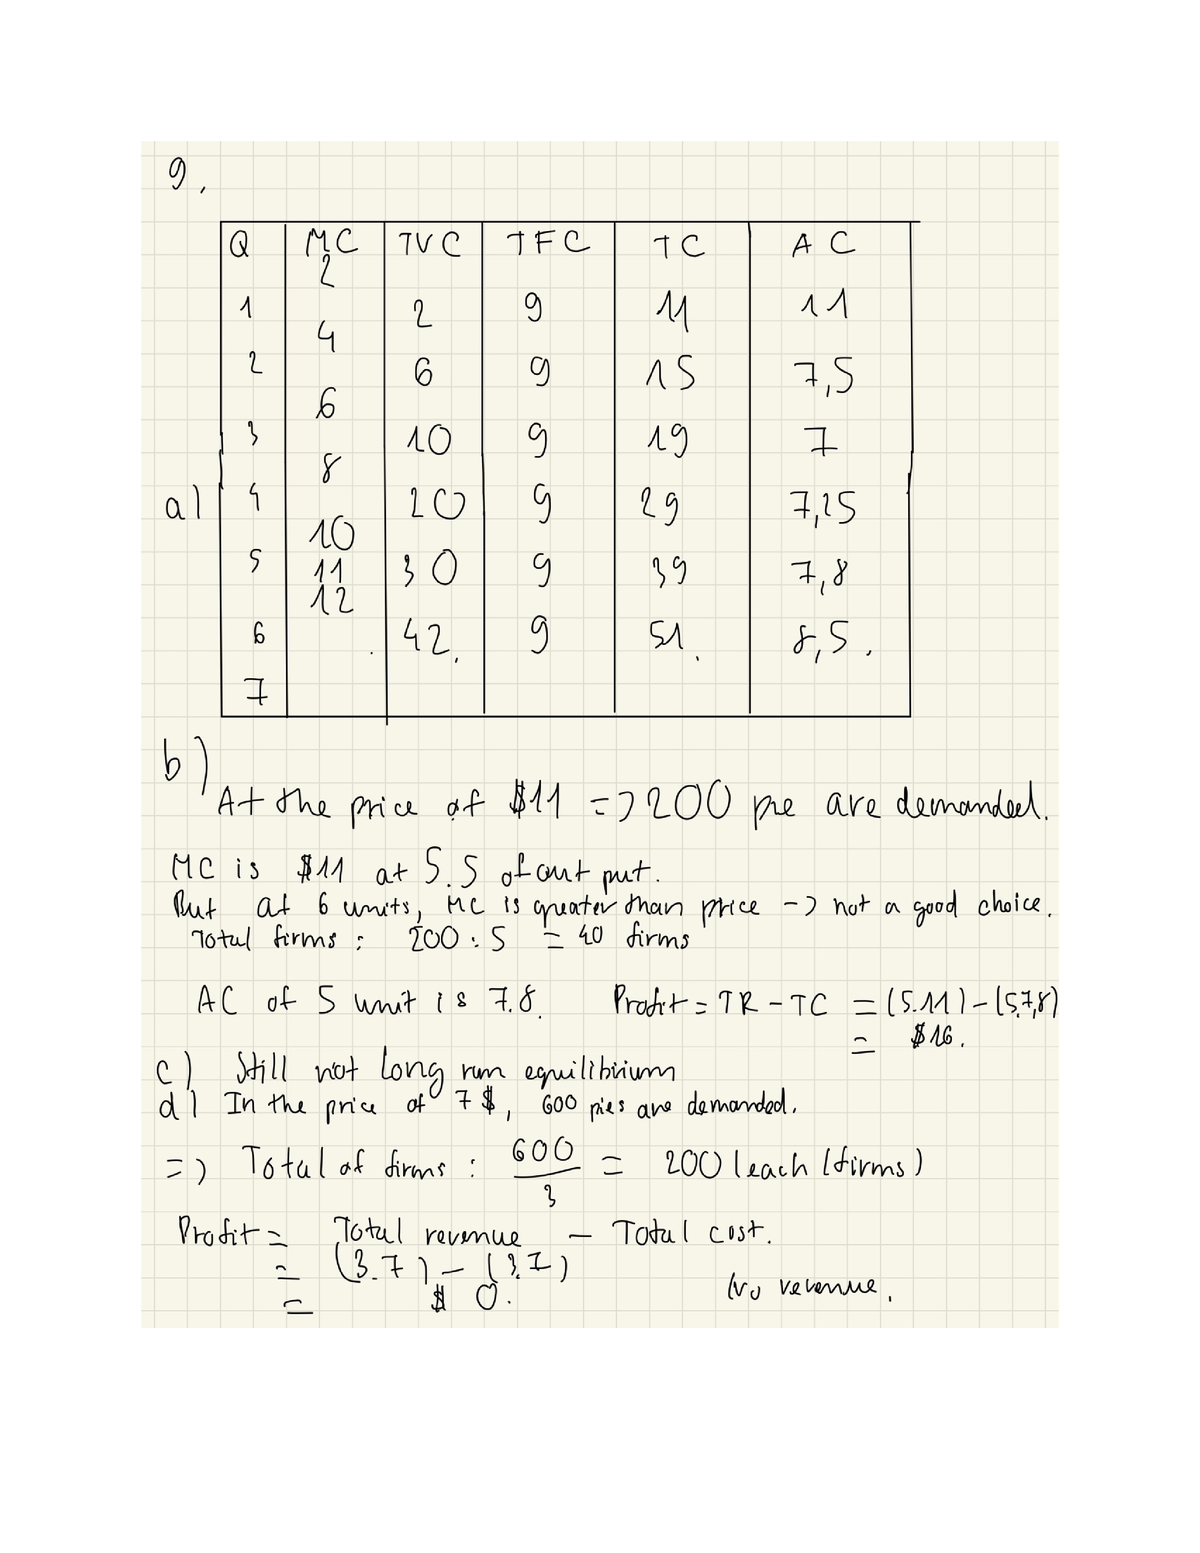 9.
Q MC TVC TFC TC AC
2
1 2 9 11 11
4
2 6 9 15 7,5
6
3 10 9 19 7
8
a) 4 20 9 29 7,25
10
5 11 30 9 39 7,8
12
6 42. 9 51. 8,5.
7
b)
At the price of $11 => 200 pie are demanded.
MC is $11 at 5.5 of out put.
But at 6 units, MC is greater than price -> not a good choice.
Total firms: 200 : 5 = 40 firms
AC of 5 unit is 7.8. Profit = TR - TC = (5.11) - (5.7,8)
= $16.
c) Still not long run equilibrium
d) In the price of 7$, 600 pies are demanded.
=> Total of firms: 600/3 = 200 (each (firms)
Profit = Total revenue - Total cost.
= (3.7) - (3.7)
= $ 0. No revenue.